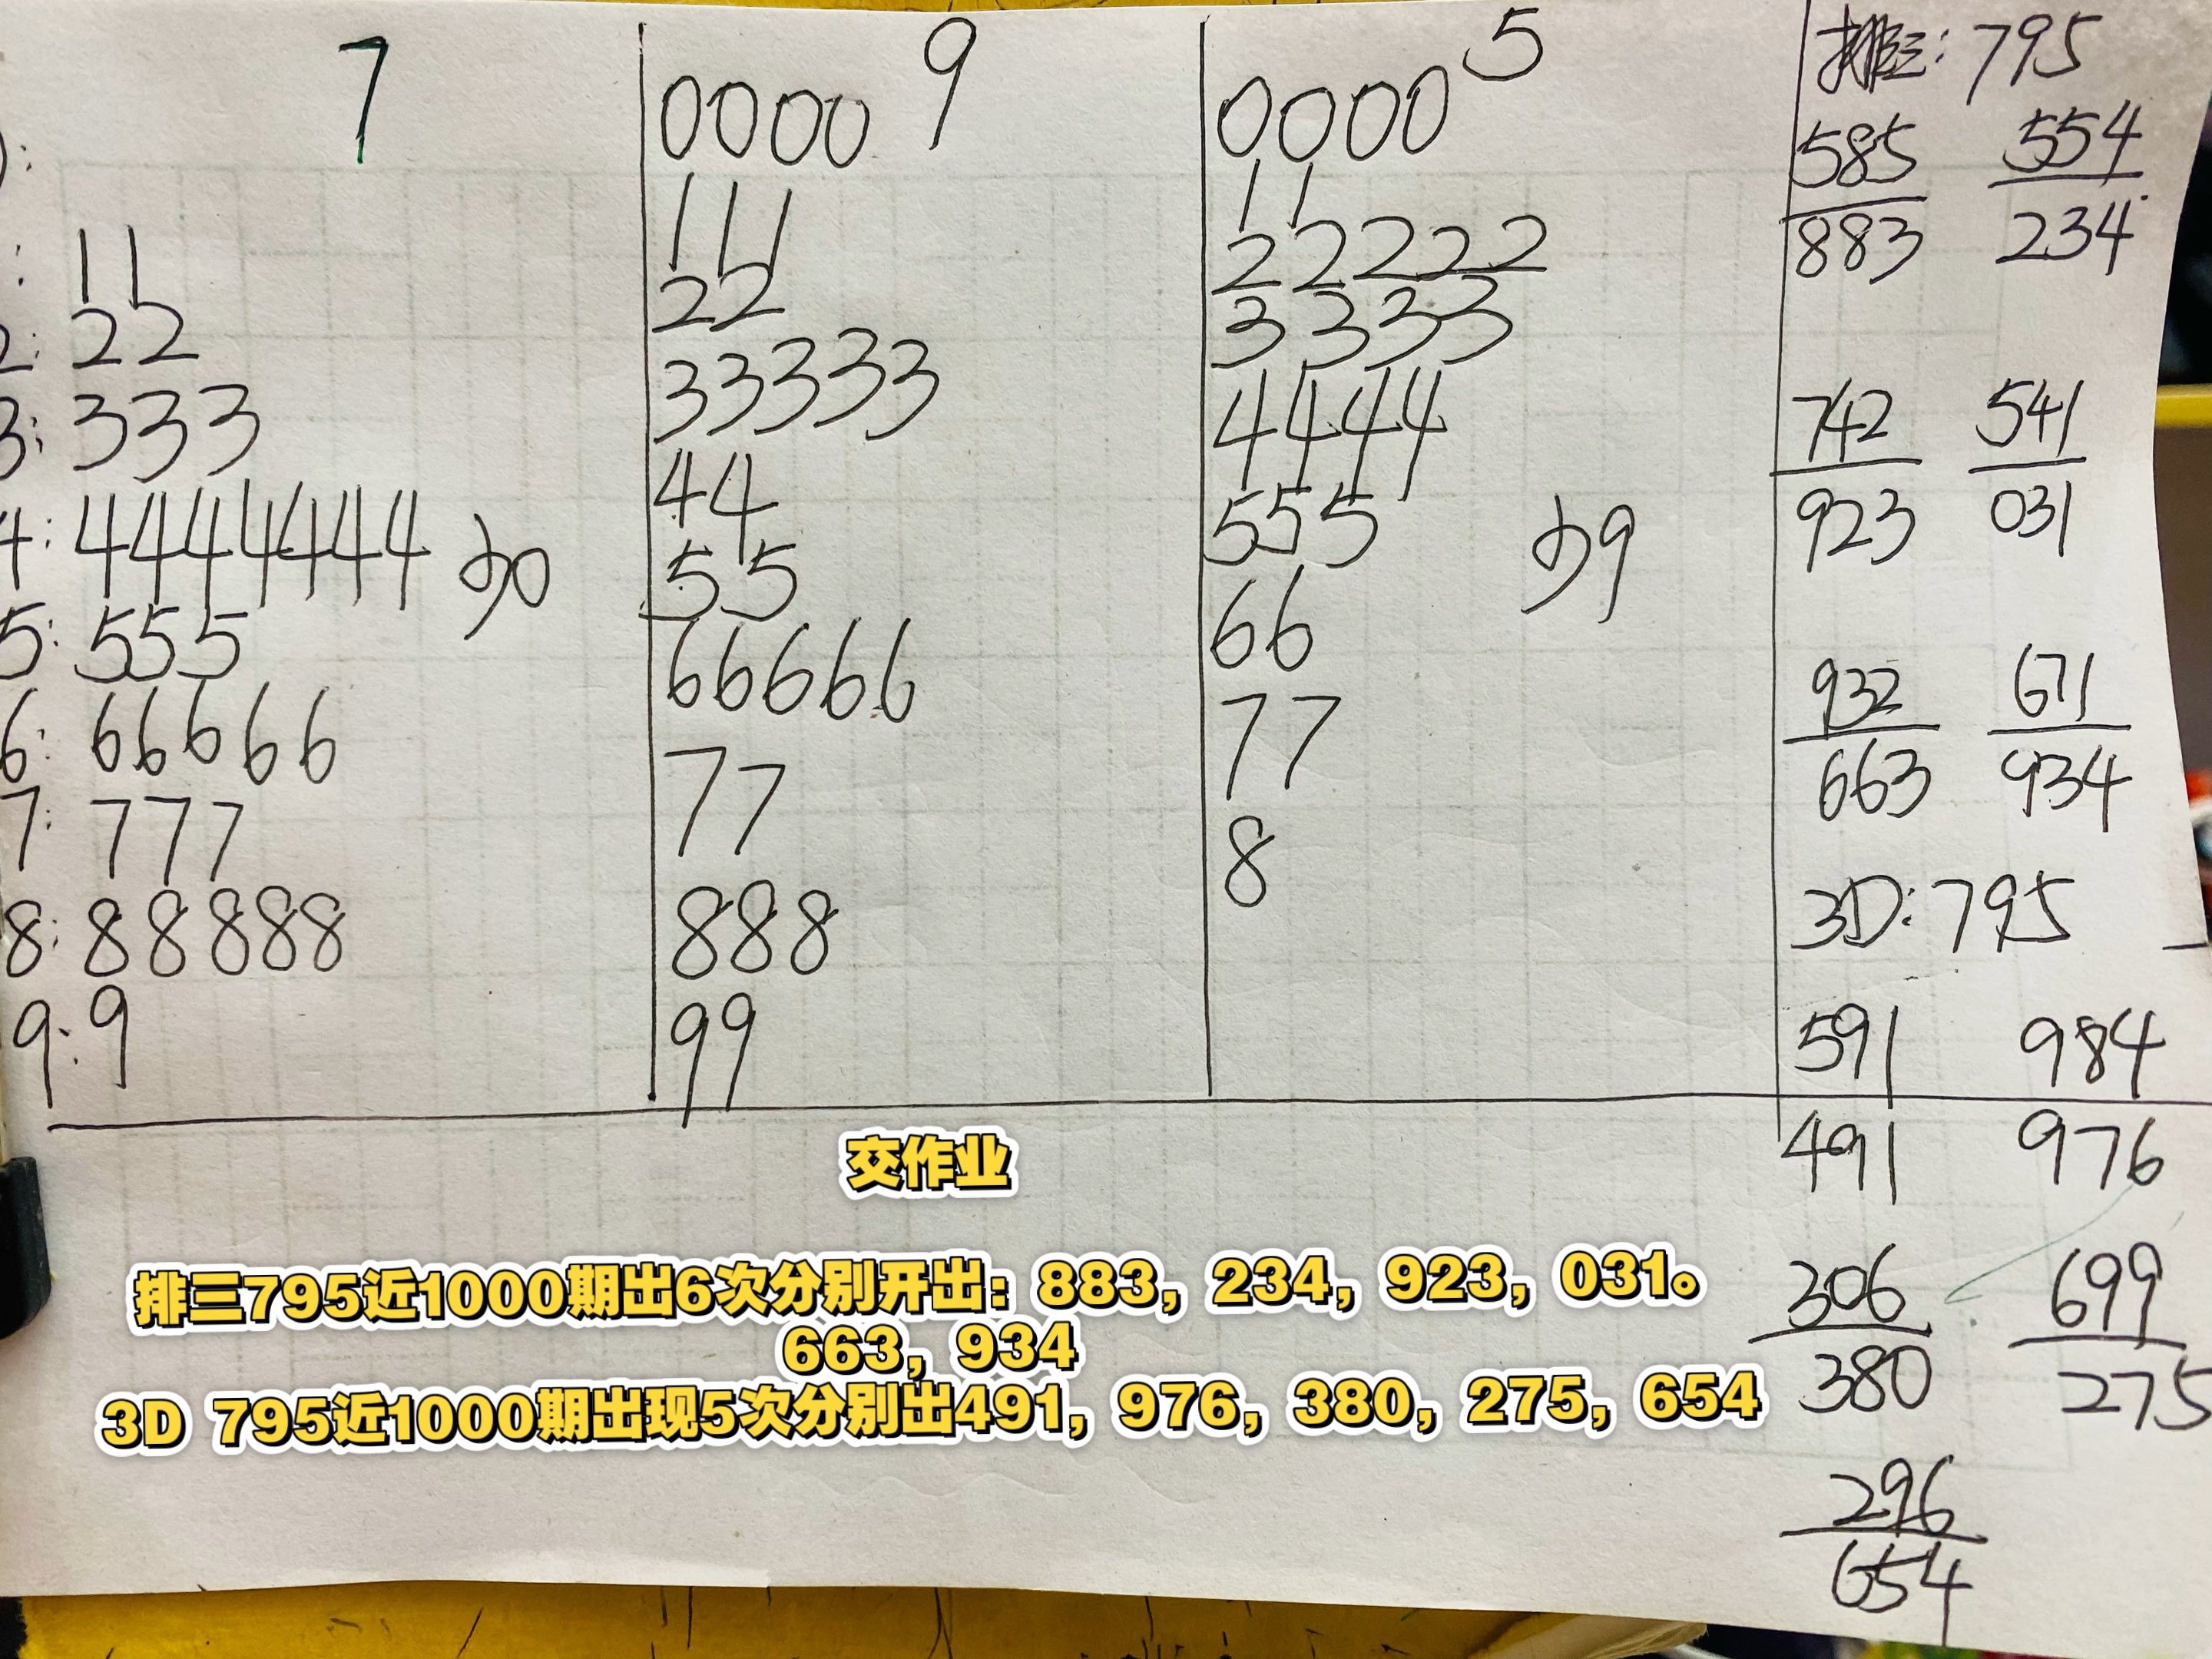 7
11
2: 22
3: 333
4: 4444444 少0
5: 555
6: 66666
7: 777
8: 88888
9: 9
9
0000
111
22
33333
44
55
66666
77
888
99
5
0000
11
22222
3333
4444
555 少9
66
77
8
排三: 795
585 554
883 234
742 541
923 031
932 671
663 934
3D: 795
591 984
491 976
306 699
380 275
296
654
交作业
排三795近1000期出6次分别开出：883，234，923，031。
663，934
3D 795近1000期出现5次分别出491，976，380，275，654